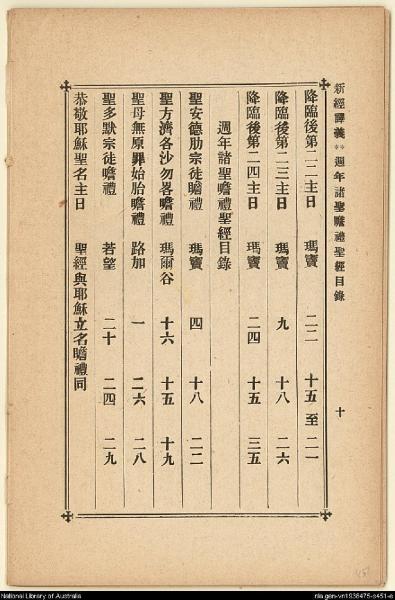 新經譯義**週年諸聖瞻禮聖經目錄 十
降臨後第二二主日 瑪竇 二二 十五至二一
降臨後第二三主日 瑪竇 九 十八 二六
降臨後第二四主日 瑪竇 二四 十五 三五
週年諸聖瞻禮聖經目錄
聖安德肋宗徒瞻禮 瑪竇 四 十八 二二
聖方濟各沙勿畧瞻禮 瑪爾谷 十六 十五 十九
聖母無原罪始胎瞻禮 路加 一 二六 二八
聖多默宗徒瞻禮 若望 二十 二四 二九
恭敬耶穌聖名主日 聖經與耶穌立名瞻禮同
National Library of Australia
nla.gen-vn1938475-s451-e